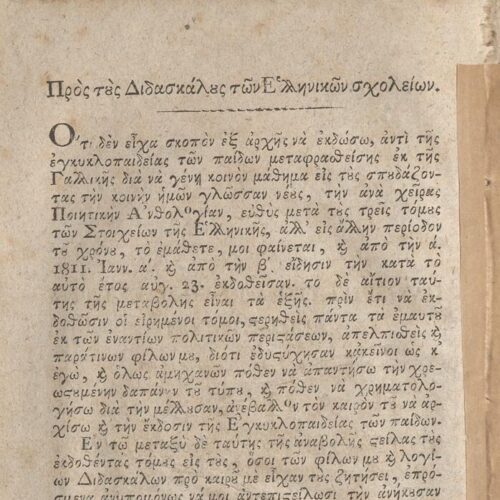 Πρὸς τοὺς Διδασκάλους τῶν Ἑλληνικῶν σχολείων.
Ὅτι δὲν εἶχα σκοπὸν ἐξ ἀρχῆς νὰ ἐκδώσω, ἀντὶ τῆς
ἐγκυκλοπαιδείας τῶν παίδων μεταφρασθείσης ἐκ τῆς
Γαλλικῆς διὰ νὰ γένῃ κοινὸν μάθημα εἰς τοὺς σπουδάζον-
τας τὴν κοινὴν ἡμῶν γλῶσσαν νέους, τὴν ἀνὰ χεῖρας
Ποιητικὴν Ἀνθολογίαν, εὐθὺς μετὰ τοὺς τρεῖς τόμους
τῶν Στοιχείων τῆς Ἑλληνικῆς, ἀλλ' εἰς ἄλλην περίοδον
τοῦ χρόνου, τὸ ἐμάθετε, μοι φαίνεται, καὶ ἀπὸ τὴν ά.
1811. Ἰανν. ά. καὶ ἀπὸ τὴν β΄ εἴδησιν τὴν κατὰ τὸ
αὐτὸ ἔτος αὐγ. 23. ἐκδοθεῖσαν. τὸ δὲ αἴτιον ταύ-
της τῆς μεταβολῆς εἶναι τὰ ἑξῆς. πρὶν ἔτι νὰ ἐκ-
δοθῶσιν οἱ εἰρημένοι τόμοι, στερηθεὶς πάντα τὰ ἐμαυτοῦ
ἐκ τῶν ἐναντίων πολιτικῶν περιστάσεων, ἀπελπισθεὶς καὶ
παρά τινων φίλων μου, διότι ἐδυστύχησαν κἀκεῖνοι ὡς κ'
ἐγώ, καὶ ὅλως ἀμηχανῶν πόθεν νὰ ἀπαντήσω τὴν χρε-
ωστουμένην δαπάνην τοῦ τύπου, καὶ πόθεν νὰ χρηματολο-
γήσω διὰ τὴν μέλλουσαν, ἀνέβαλλον τὸν καιρὸν τοῦ νὰ ἀρ-
χίσω καὶ τὴν ἔκδοσιν τῆς Ἐγκυκλοπαιδείας τῶν παίδων.
Ἐν τῷ μεταξὺ δὲ ταύτης τῆς ἀναβολῆς στείλας τοὺς
ἐκδοθέντας τόμους εἰς τοὺς, ὅσοι τῶν φίλων μου καὶ λογίων
Διδασκάλων πρὸ καιροῦ μὲ εἶχαν τοὺς ζητήσει, ἐπρόσ-
μενα ἀνυπομόνως νὰ μοὶ ἀντεπιστείλωσι τὴν ἀνήκουσαν